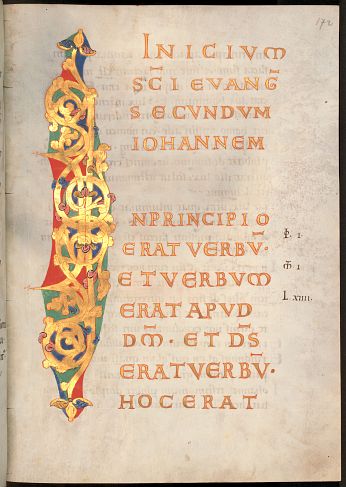 172
INICIUM
SC̅I EVANG̅
SECUNDUM
IOHANNEM
INPRINCIPIO
ERAT VERBU̅·
ET VERBUM
ERAT APUD
DM̅· ET DS̅
ERAT VERBU̅·
HOC ERAT
I.
I
Lxiiii.